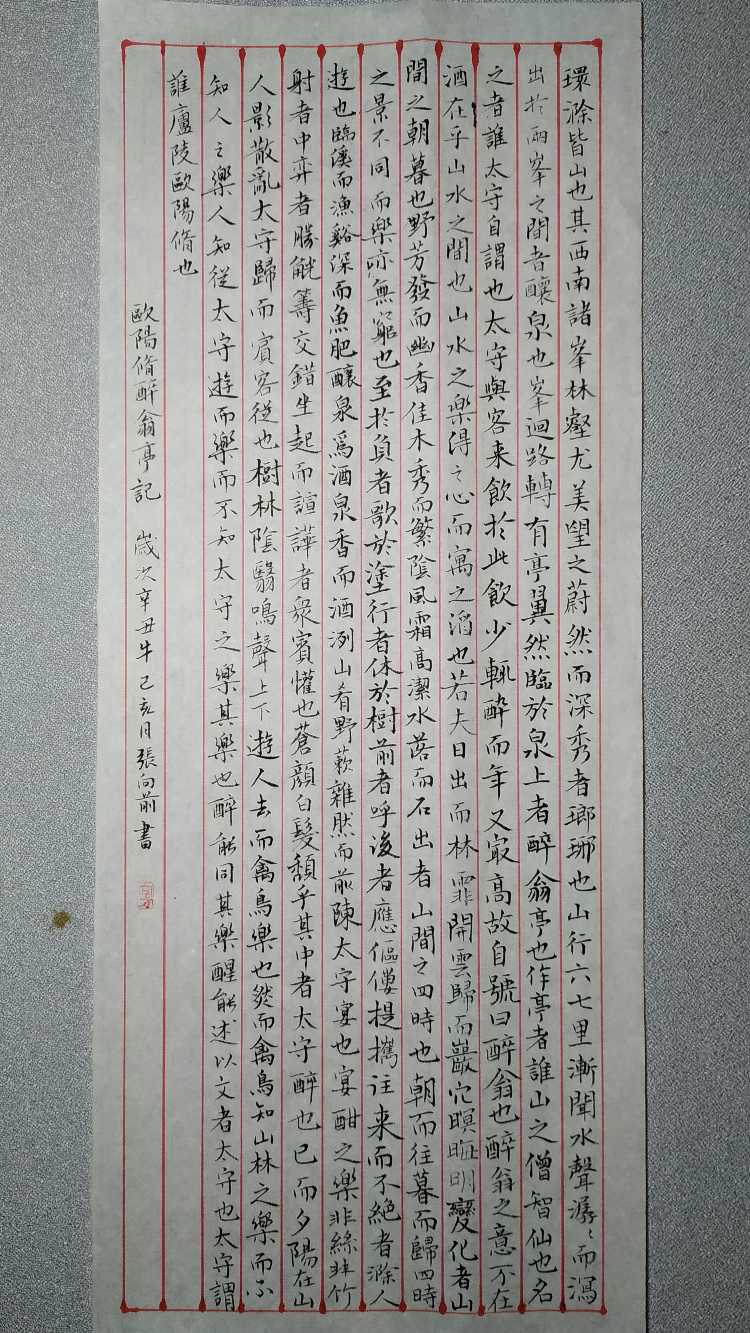 環滁皆山也其西南諸峯林壑尤美望之蔚然而深秀者瑯琊也山行六七里漸聞水聲潺〻而瀉
出於兩峯之間者釀泉也峯迴路轉有亭翼然臨於泉上者醉翁亭也作亭者誰山之僧智仙也名
之者誰太守自謂也太守與客来飲於此飲少輒醉而年又最高故自號曰醉翁也醉翁之意不在
酒在乎山水之間也山水之樂得之心而寓之酒也若夫日出而林霏開雲歸而巖穴暝晦明變化者山
間之朝暮也野芳發而幽香佳木秀而繁陰風霜高潔水落而石出者山間之四時也朝而往暮而歸四時
之景不同而樂亦無窮也至於負者歌於塗行者休於樹前者呼後者應傴僂提攜往来而不絕者滁人
遊也臨溪而漁谿深而魚肥釀泉爲酒泉香而酒洌山肴野蔌雜然而前陳太守宴也宴酣之樂非絲非竹
射者中弈者勝觥籌交錯坐起而諠譁者衆賓懽也蒼顏白髮頹乎其中者太守醉也已而夕陽在山
人影散亂太守歸而賓客從也樹林陰翳鳴聲上下遊人去而禽鳥樂也然而禽鳥知山林之樂而不
知人之樂人知從太守遊而樂而不知太守之樂其樂也醉能同其樂醒能述以文者太守也太守謂
誰廬陵歐陽脩也
歐陽脩醉翁亭記 歲次辛丑牛己亥月張向前書